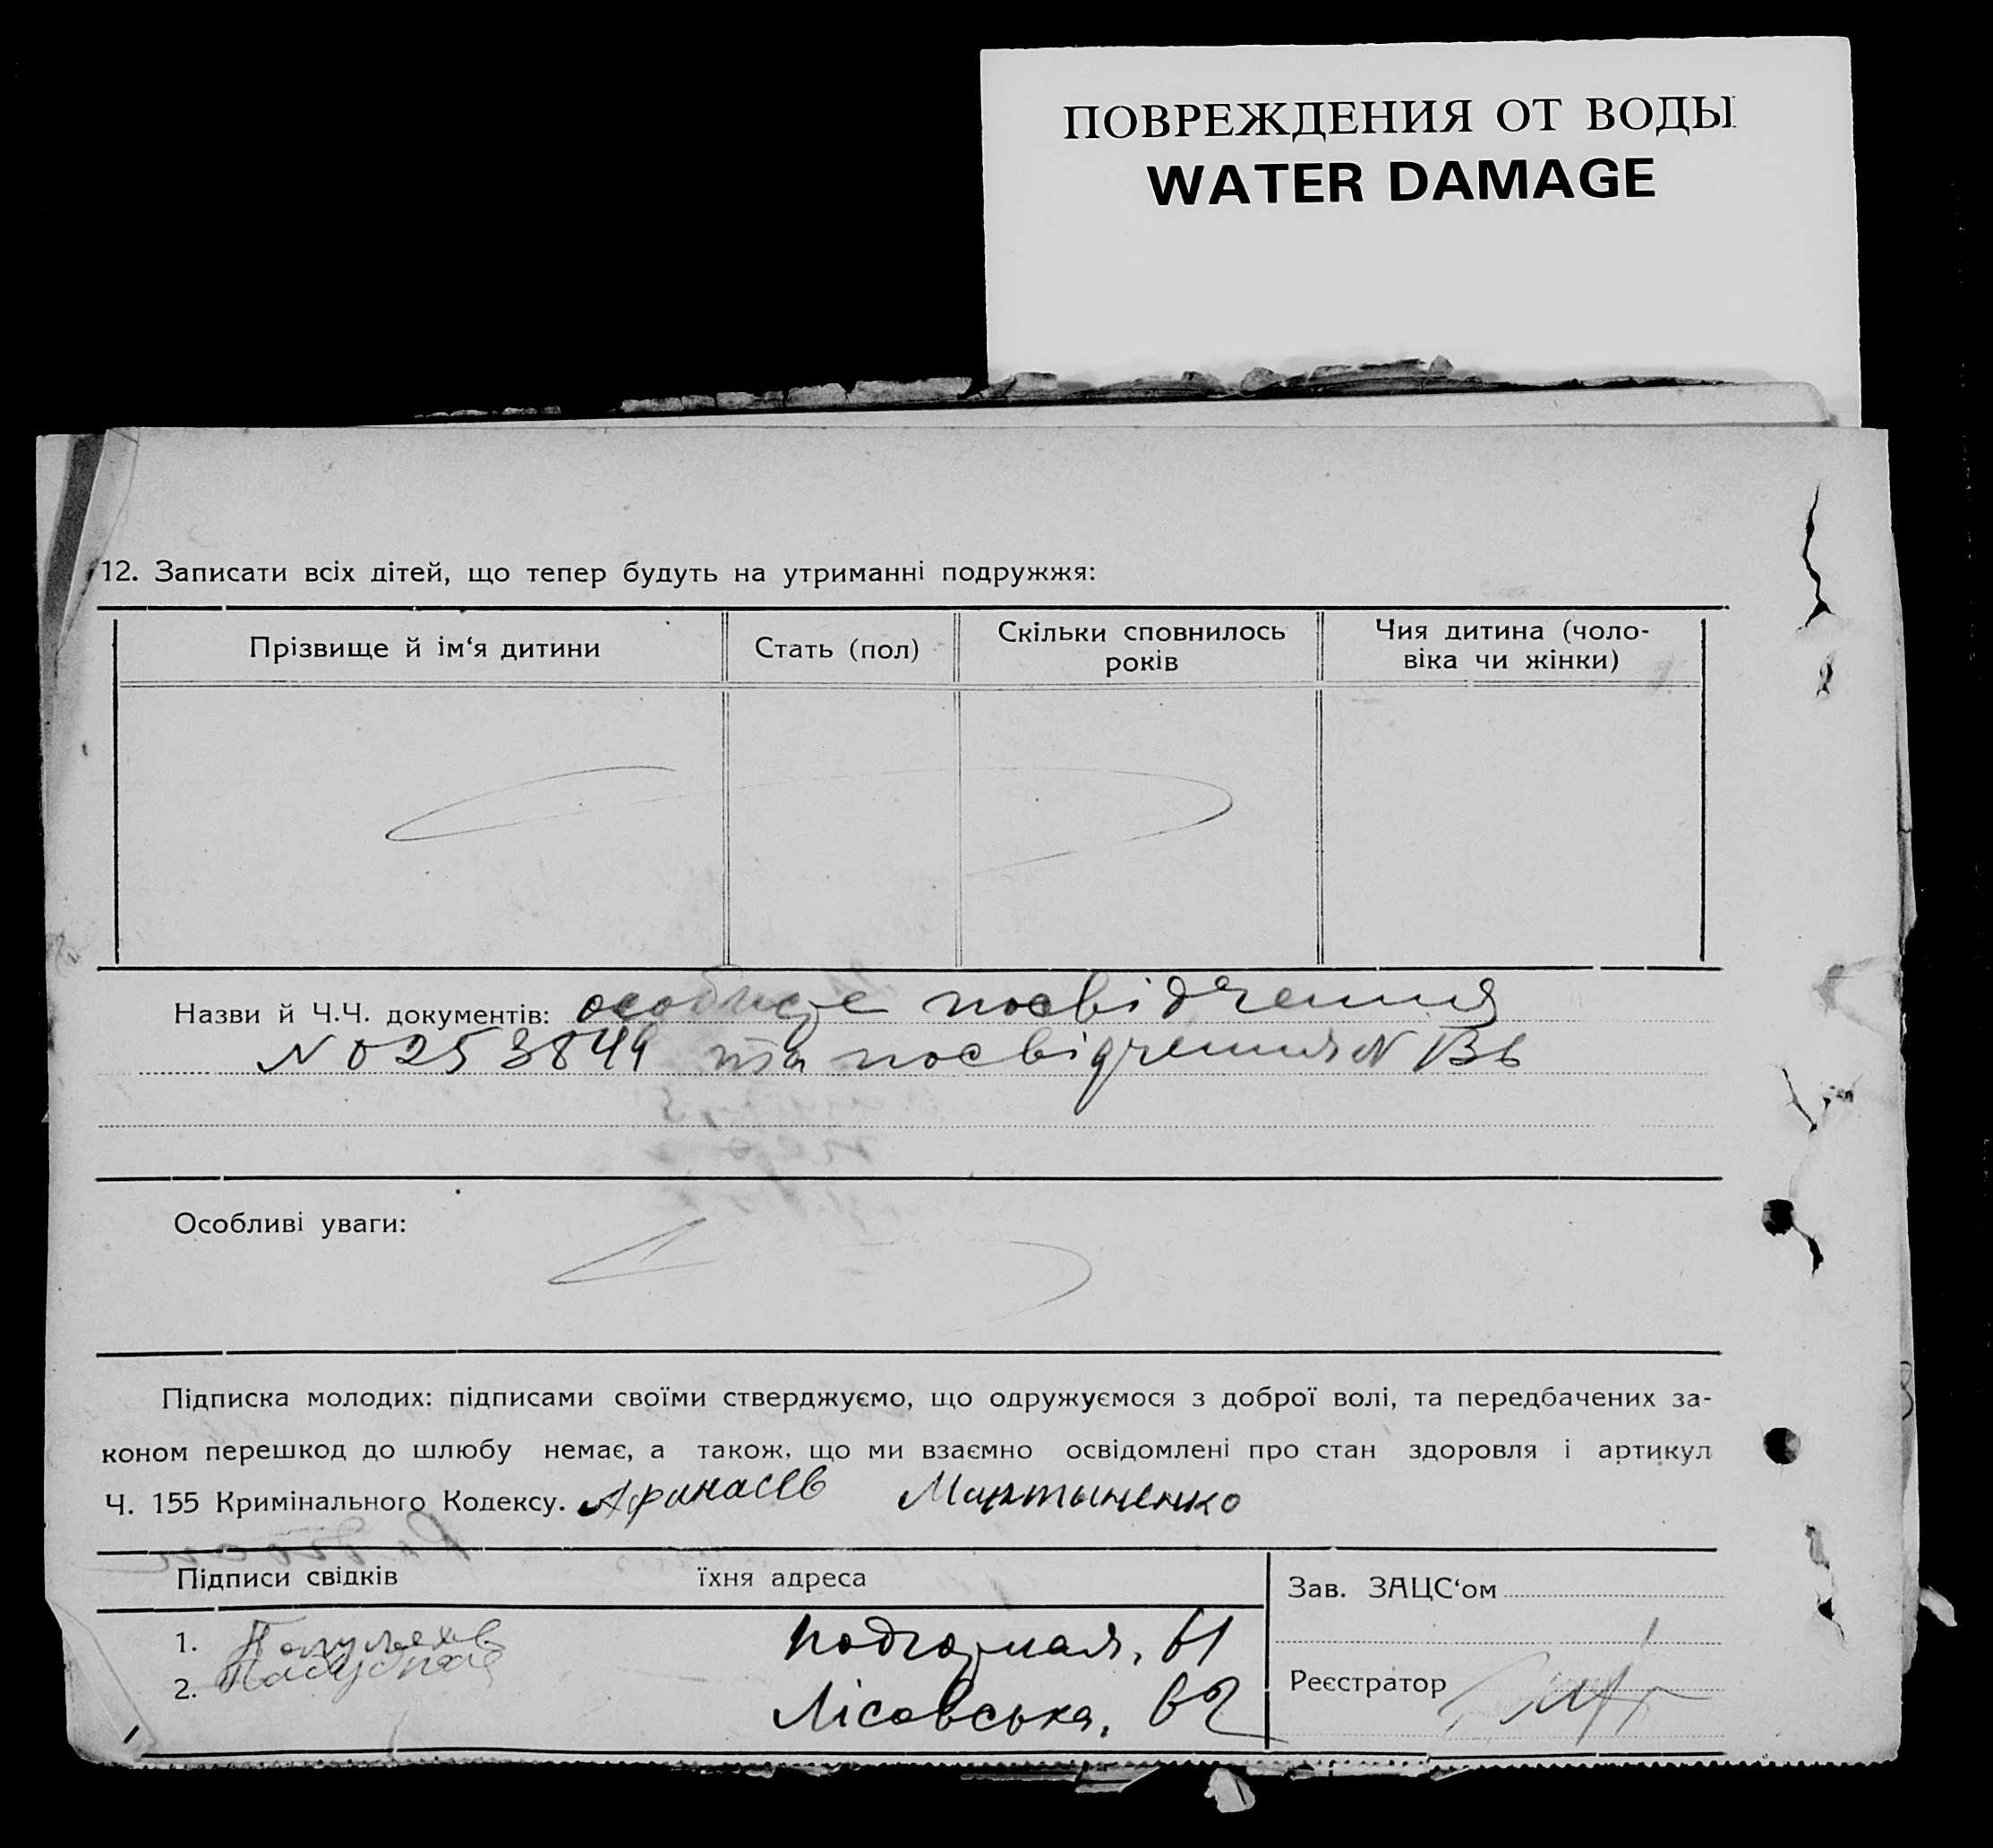 ПОВРЕЖДЕНИЯ ОТ ВОДЫ
WATER DAMAGE
12. Записати всіх дітей, що тепер будуть на утриманні подружжя:
Прізвище й ім‘я дитини
Стать (пол)
Скільки сповнилось
років
Чия дитина (чоло-
віка чи жінки)
Назви й Ч.Ч. документів: особисте посвідчення
N 0253844 та посвідчення N
Особливі уваги:
Підписка молодих: підписами своїми стверджуємо, що одружуємося з доброї волі, та передбачених за-
коном перешкод до шлюбу немає, а також, що ми взаємно освідомлені про стан здоровля і артикул
Ч. 155 Кримінального Кодексу. Афанасев Мартыненко
Підписи свідків їхня адреса
Зав. ЗАЦС‘ом
1. Подгорная, 61
2. Лісовська, 62
Реєстратор